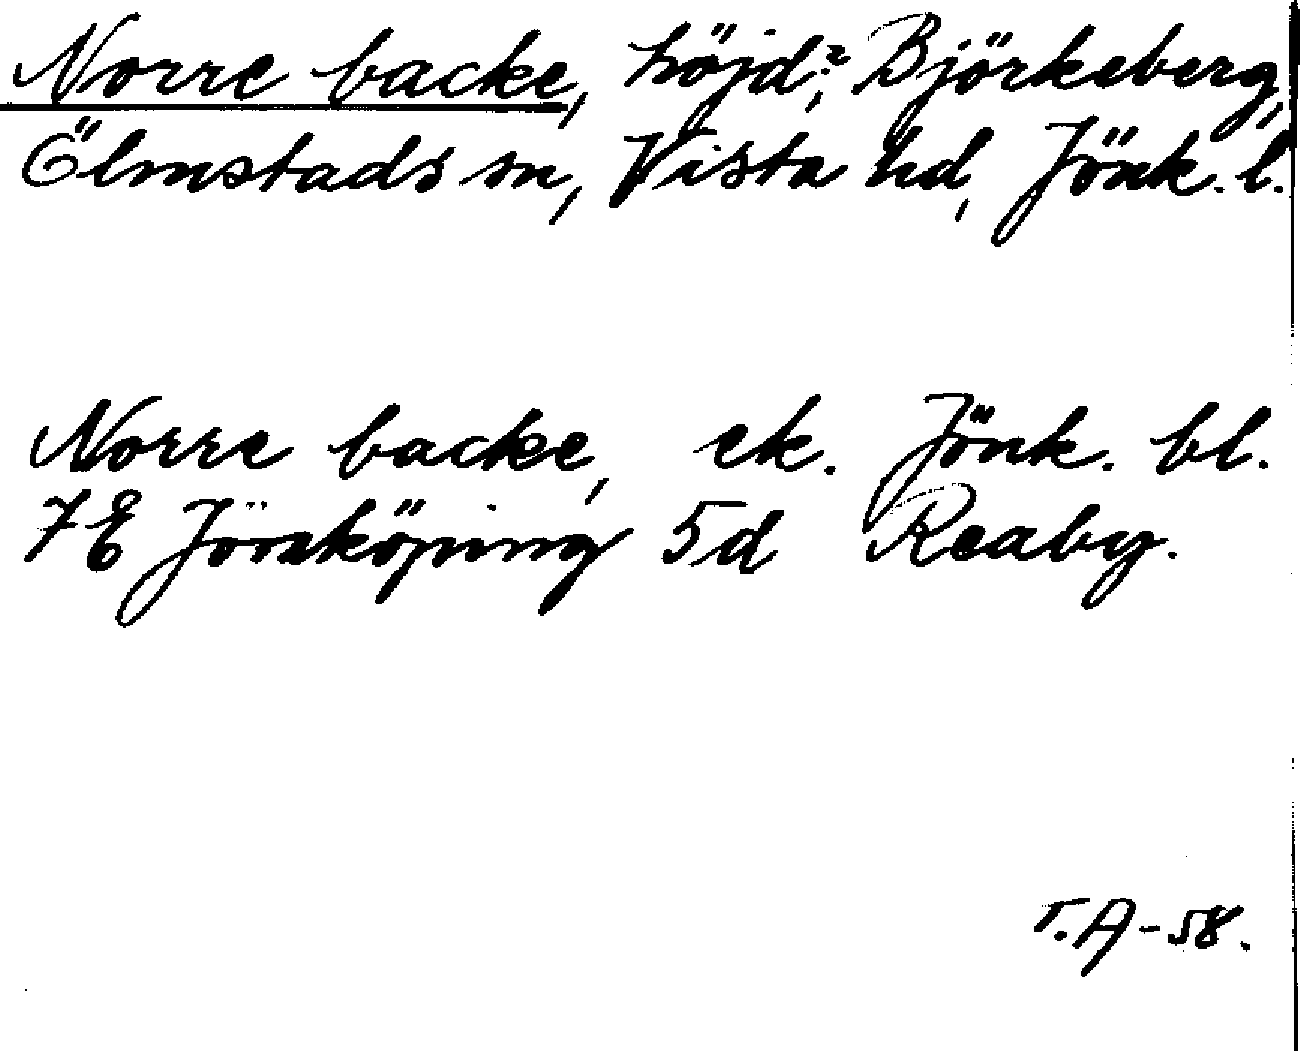 Norre backe, höjd?, Björkeberg,
Ölmstads sn, Vista hd, Jönk. l.
Norre backe, ek. Jönk. bl.
7E Jönköping 5d Reaby.
T.A-58.